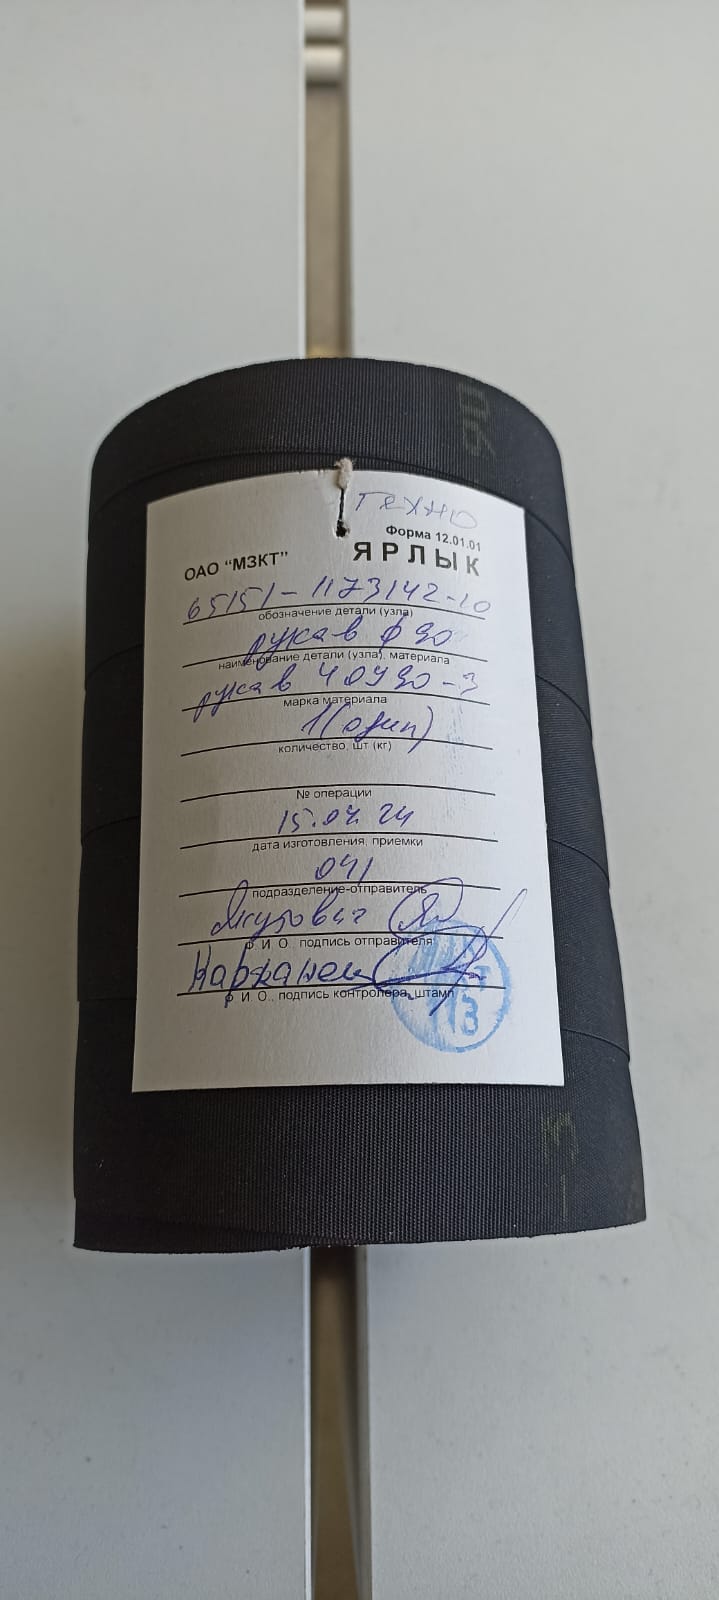 ТЕХНО
Форма 12.01.01
ОАО “МЗКТ” ЯРЛЫК
65151-1173142-10
обозначение детали (узла)
рукав ф 90
наименование детали (узла), материала
рукав 40У90-3
марка материала
1 (один)
количество, шт (кг)
№ операции
15.04.24
дата изготовления, приемки
041
подразделение-отправитель
Якутович
Ф. И. О., подпись отправителя
Ф. И. О., подпись контролера, штамп
13